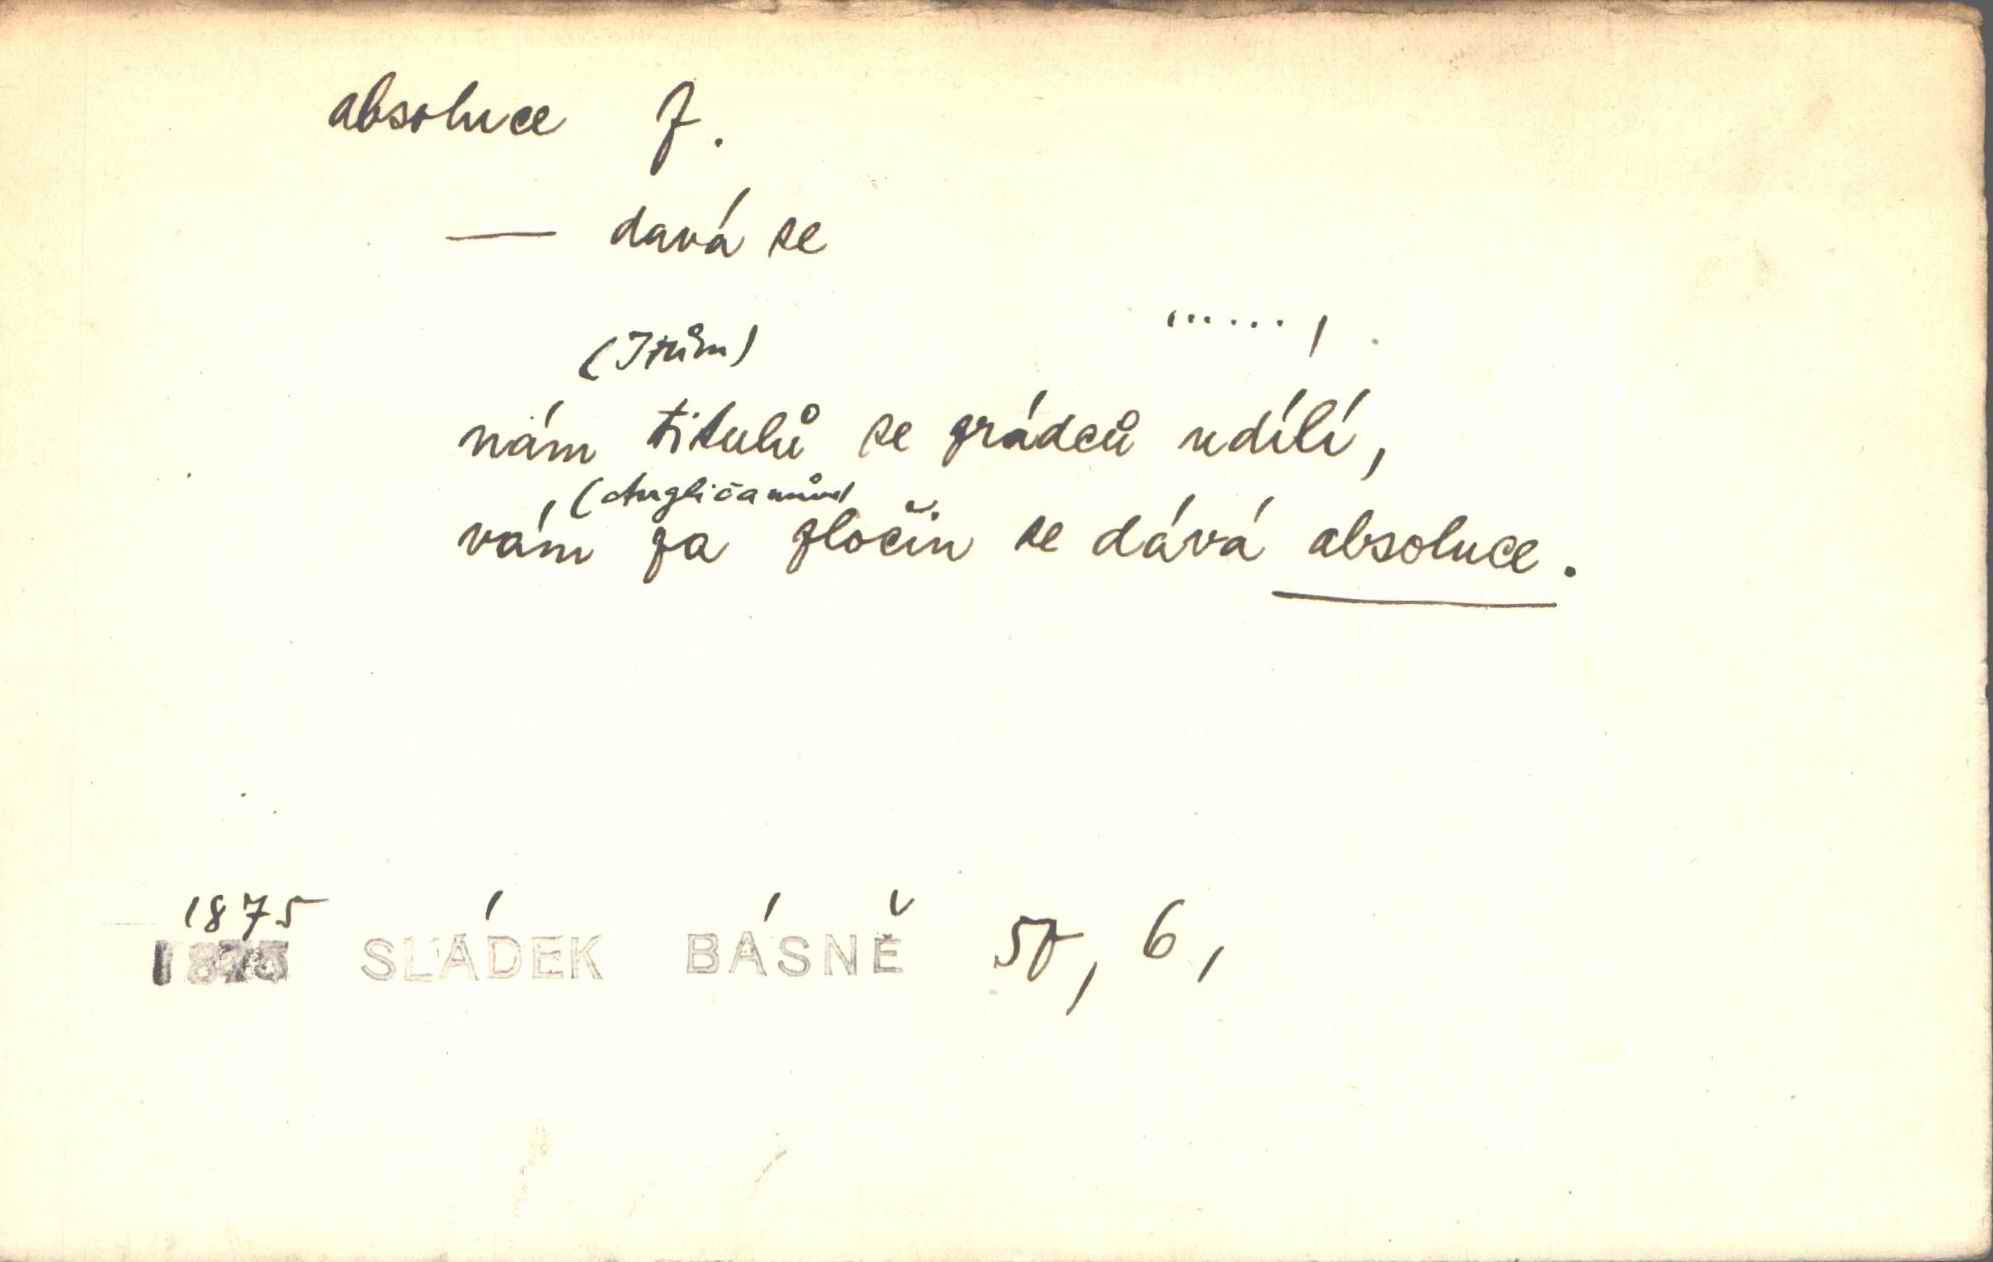 absoluce f.
— davá se
......,
(Irům)
nám titulů se zrádců udílí,
(Angličanům)
vám za zločin se dává absoluce.
1875
1875 SLÁDEK BÁSNĚ 57, 6,